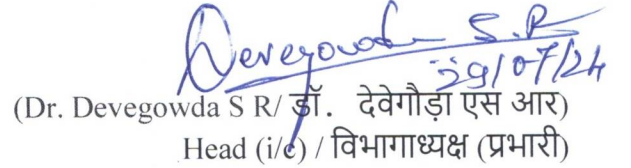 Devegowda S.R
29/07/24
(Dr. Devegowda S R/ डॉ. देवेगौड़ा एस आर)
Head (i/c) / विभागाध्यक्ष (प्रभारी)